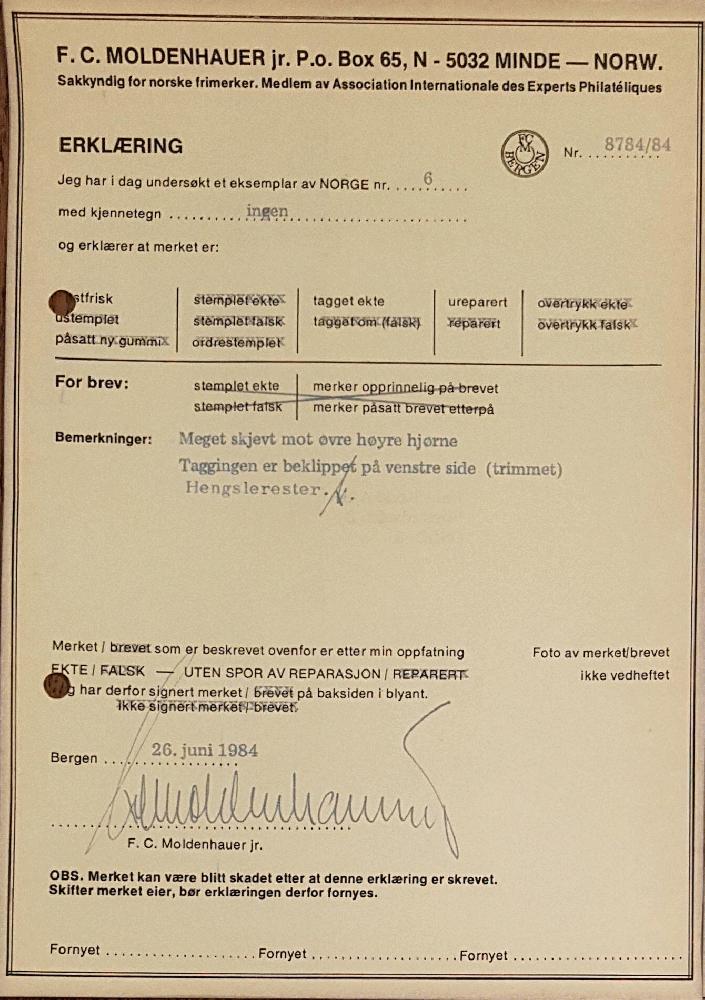 F. C. MOLDENHAUER jr. P.o. Box 65, N - 5032 MINDE — NORW.
Sakkyndig for norske frimerker. Medlem av Association Internationale des Experts Philatéliques
ERKLÆRING
FCM BERGEN
Nr. 8784/84
Jeg har i dag undersøkt et eksemplar av NORGE nr. 6
med kjennetegn ingen
og erklærer at merket er:
stfrisk stemplet ekte tagget ekte ureparert overtrykk ekte
ustemplet stemplet falsk tagget om (falsk) reparert overtrykk falsk
påsatt ny gummi ordrestemplet
For brev: stemplet ekte merker opprinnelig på brevet
stemplet falsk merker påsatt brevet etterpå
Bemerkninger: Meget skjevt mot øvre høyre hjørne
Taggingen er beklippet på venstre side (trimmet)
Hengslerester.
Merket / brevet som er beskrevet ovenfor er etter min oppfatning Foto av merket/brevet
EKTE / FALSK — UTEN SPOR AV REPARASJON / REPARERT ikke vedheftet
g har derfor signert merket / brevet på baksiden i blyant.
ikke signert merket / brevet.
Bergen 26. juni 1984
F. C. Moldenhauer jr.
OBS. Merket kan være blitt skadet etter at denne erklæring er skrevet.
Skifter merket eier, bør erklæringen derfor fornyes.
Fornyet Fornyet Fornyet